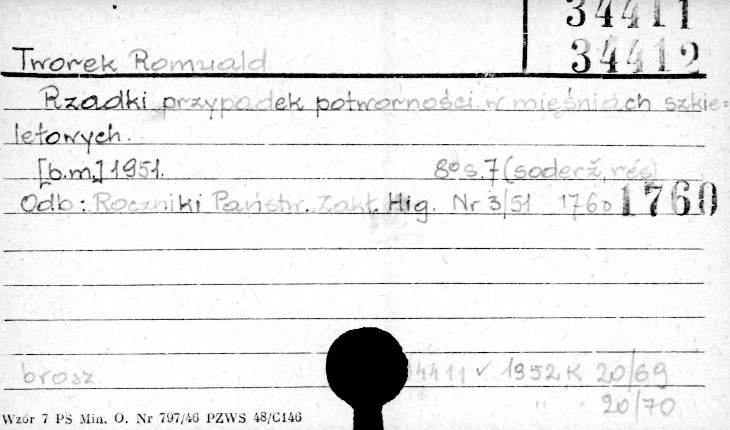 34411
Tworek Romuald 34412
Rzadki przypadek potworności w mięśniach szkie=
letowych.
[b.m.] 1951. 8° s. 7 (soderž, rés)
Odb: Roczniki Państw. Zakł. Hig. Nr 3/51 1760 1760
brosz 4411 ✓ 1952 K 20/69
" " 20/70
Wzór 7 PS Min. O. Nr 797/46 PZWS 48/C146